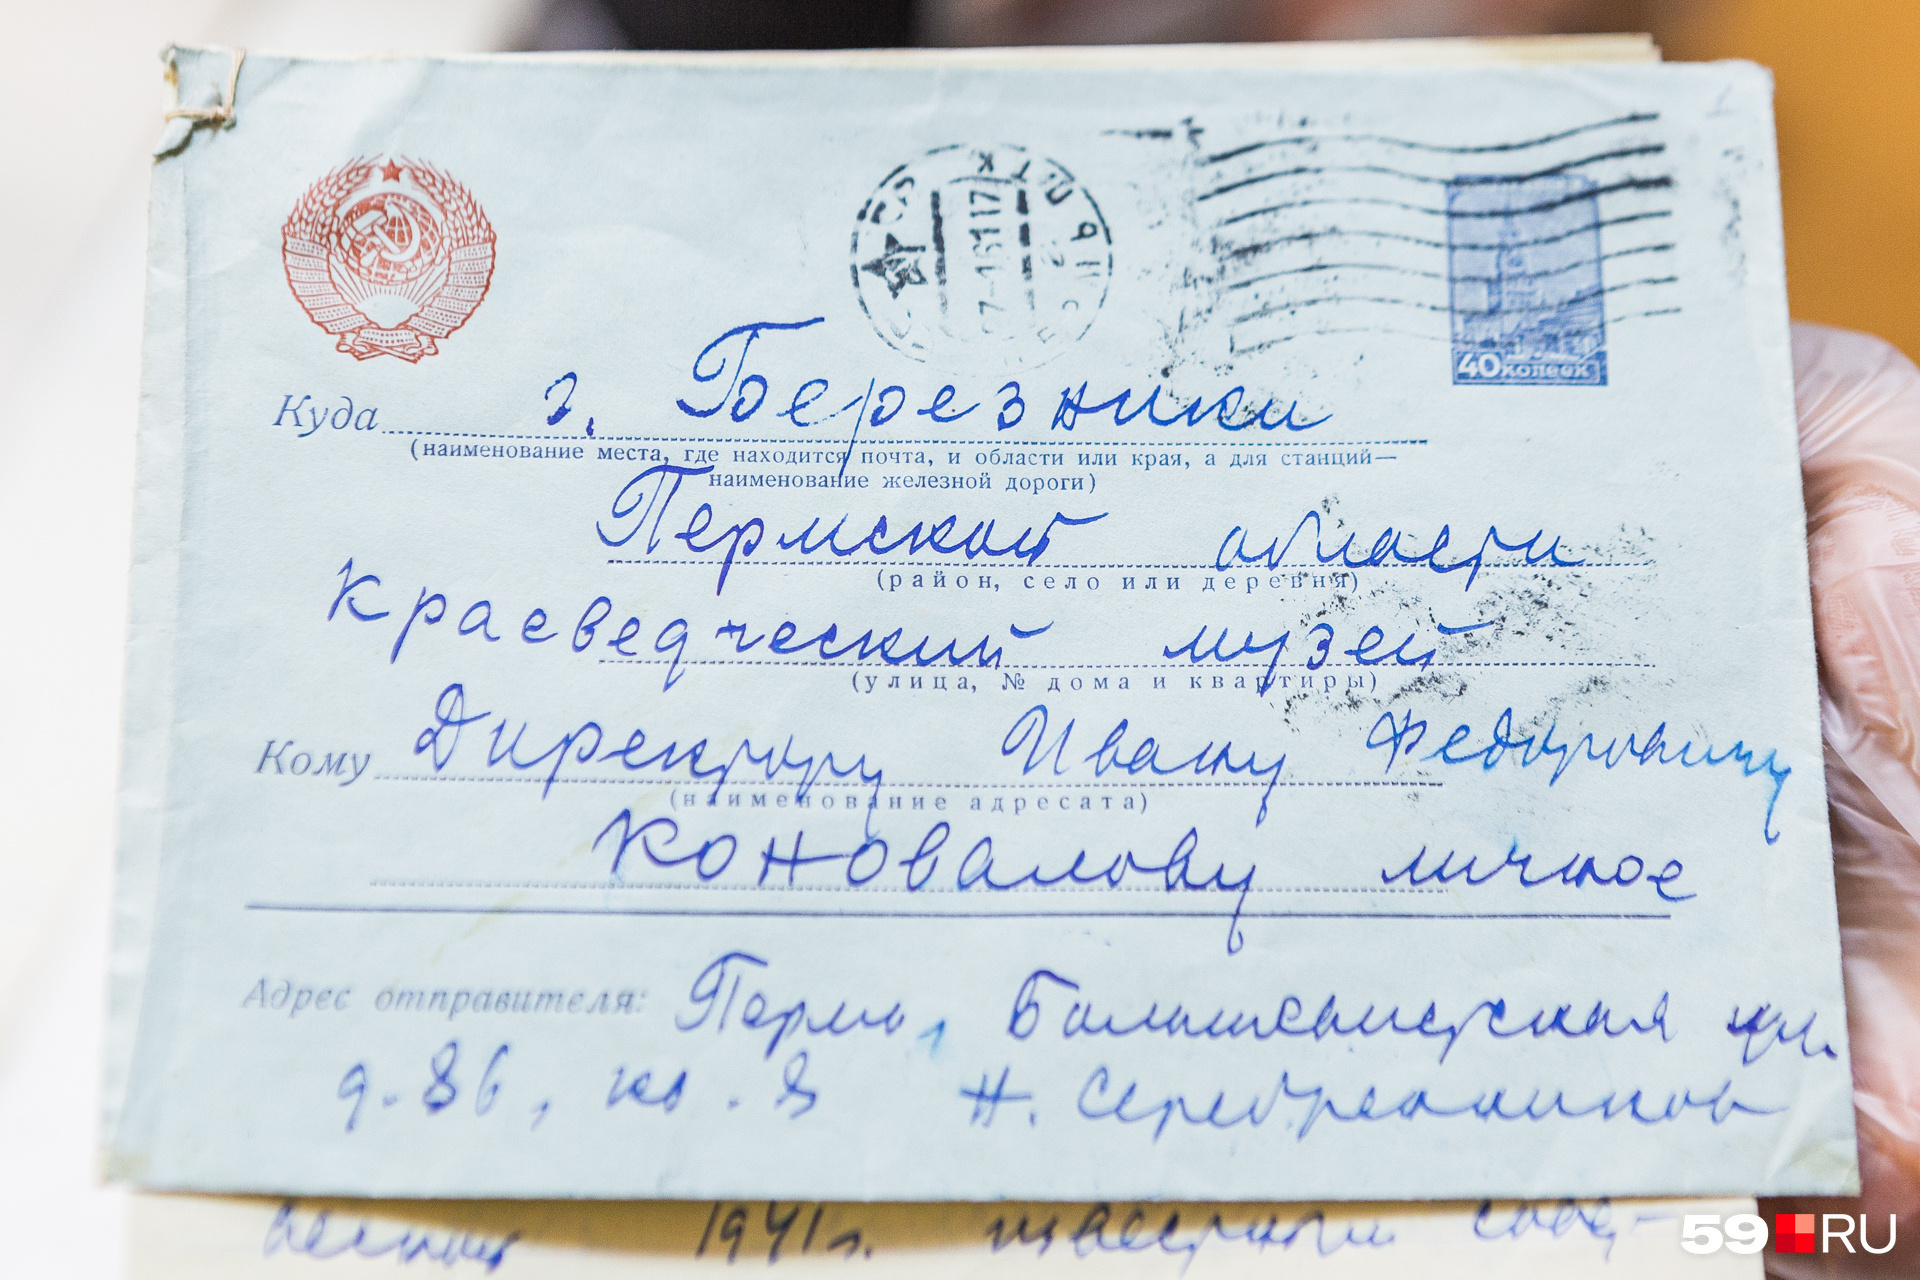 40 копеек
Куда г. Березники
(наименование места, где находится почта, и области или края, а для станций—
наименование железной дороги)
Пермской области
(район, село или деревня)
Краеведческий музей
(улица, № дома и квартиры)
Кому Директору Ивану Федоровичу
(наименование адресата)
Коновалову личное
Адрес отправителя: Пермь, Большевистская ул.
д. 86, кв. 8 Н. Серебренников
весной 1941 г.
59 RU